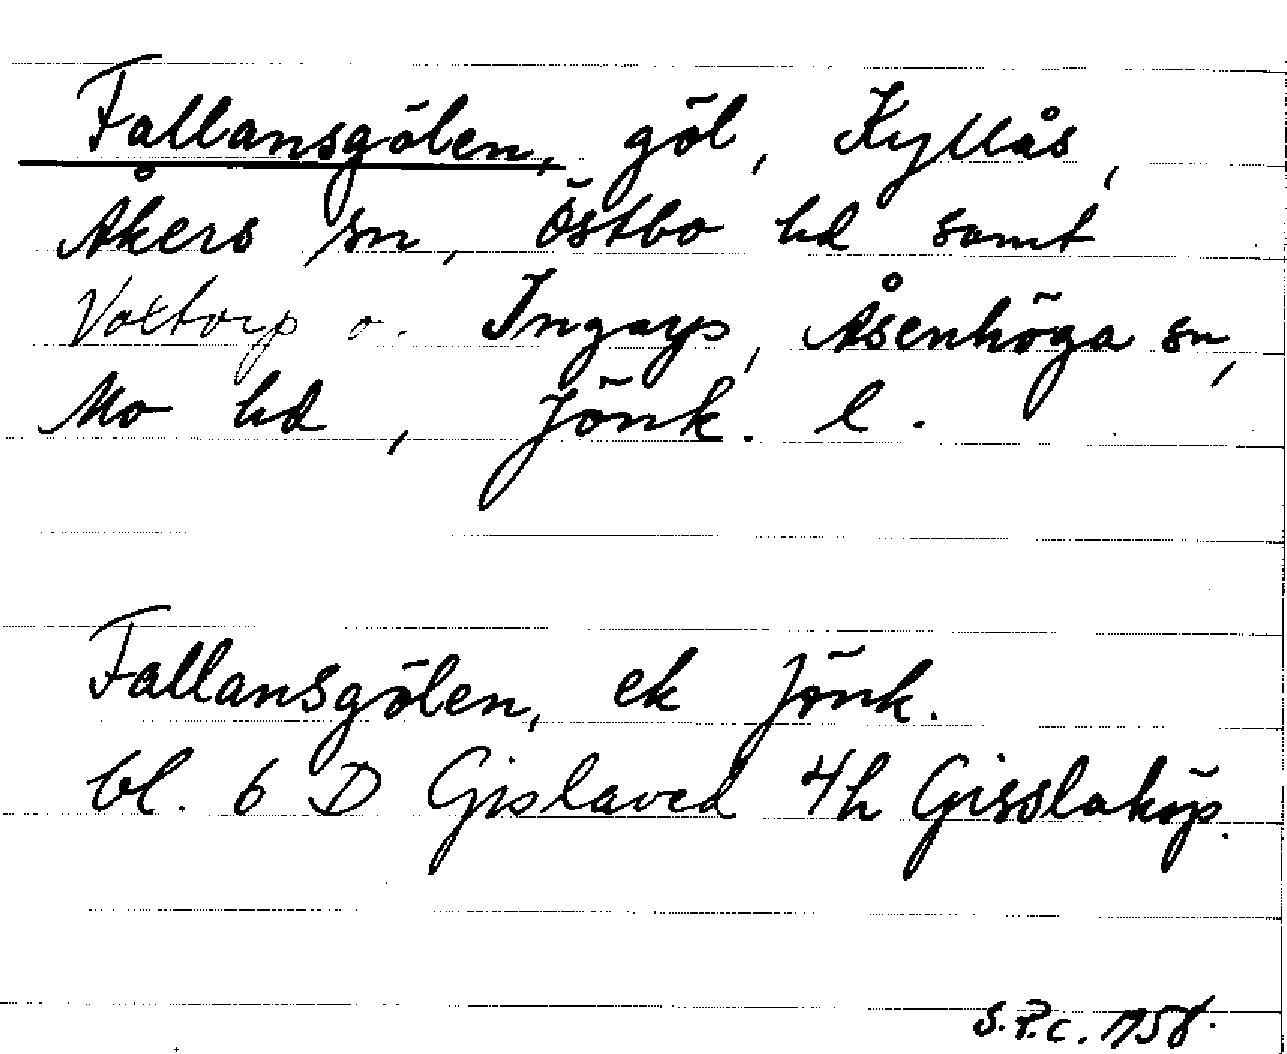 Fallansgölen, göl, Kyllås,
Åkers sn, Östbo hd samt
Voxtorp o. Ingarp, Åsenhöga sn,
Mo hd, Jönk. l.
Fallansgölen, ek Jönk.
bl. 6 D Gislaved 4h Gisslaköp.
S.P.C. 1758.